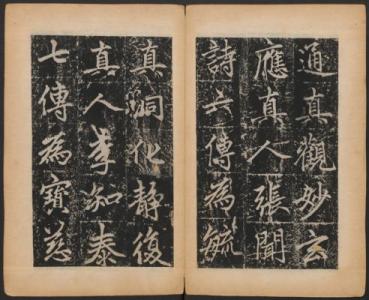 通真觀妙玄
應真人張聞
詩六傳為毓
真洞化靜復
真人李知泰
七傳為寶慈